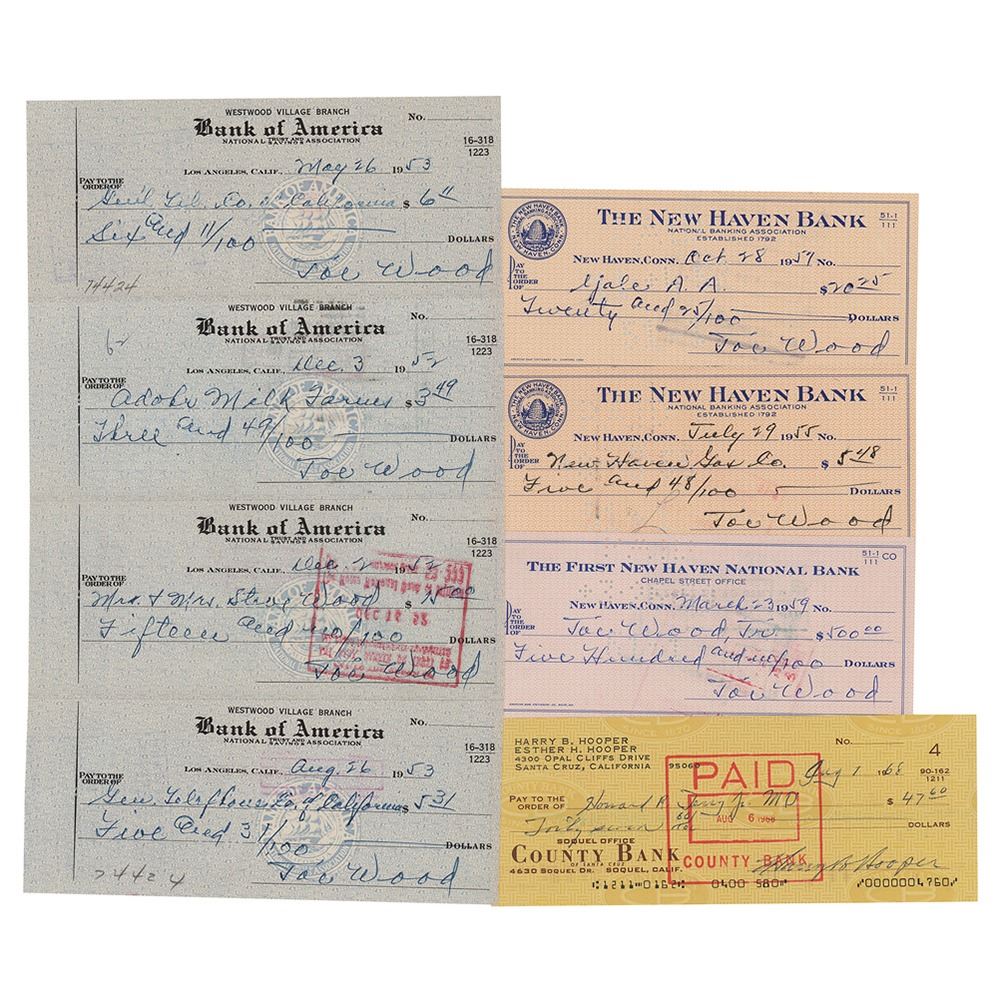 WESTWOOD VILLAGE BRANCH
Bank of America No.
NATIONAL TRUST AND SAVINGS ASSOCIATION
16-318
1223
LOS ANGELES, CALIF. May 26 1953
PAY TO THE
ORDER OF Gen'l Tel. Co. of California $ 6 11
Six and 11/100 DOLLARS
Joe Wood
74424
WESTWOOD VILLAGE BRANCH
Bank of America
NATIONAL TRUST AND SAVINGS ASSOCIATION
16-318
1223
LOS ANGELES, CALIF. Dec. 3 1952
PAY TO THE
ORDER OF Adohr Milk Farms $ 3 49
Three and 49/100 DOLLARS
Joe Wood
WESTWOOD VILLAGE BRANCH
Bank of America No.
NATIONAL TRUST AND SAVINGS ASSOCIATION
16-318
1223
LOS ANGELES, CALIF. Dec. 2 1952
PAY TO THE
ORDER OF Mr. & Mrs. Steve Wood $ 15 00
Fifteen and no/100 DOLLARS
Joe Wood
DEC 16 52
WESTWOOD VILLAGE BRANCH
Bank of America No.
NATIONAL TRUST AND SAVINGS ASSOCIATION
16-318
1223
LOS ANGELES, CALIF. Aug. 26 1953
PAY TO THE
ORDER OF Gen. Telephone Co. of California $ 5 31
Five and 31/100 DOLLARS
Joe Wood
74424
THE NEW HAVEN BANK 51-1
111
NATIONAL BANKING ASSOCIATION
ESTABLISHED 1792
NEW HAVEN, CONN. Oct. 28 1957 No.
PAY TO THE ORDER OF Yale A. A. $ 20 25
Twenty and 25/100 DOLLARS
Joe Wood
THE NEW HAVEN BANK 51-1
111
NATIONAL BANKING ASSOCIATION
ESTABLISHED 1792
NEW HAVEN, CONN. July 29 1955 No.
PAY TO THE ORDER OF New Haven Gas Co. $ 5 48
Five and 48/100 DOLLARS
Joe Wood
THE FIRST NEW HAVEN NATIONAL BANK 51-1 CO
111
CHAPEL STREET OFFICE
NEW HAVEN, CONN. March 23 1959 No.
PAY TO THE ORDER OF Joe Wood, Jr. $ 500 00
Five Hundred and no/100 DOLLARS
Joe Wood
HARRY B. HOOPER No. 4
ESTHER H. HOOPER
4300 OPAL CLIFFS DRIVE
SANTA CRUZ, CALIFORNIA 95060
Aug 1 1968 90-162
1211
PAY TO THE
ORDER OF Howard R Terry Jr. MD $ 47 60
DOLLARS
PAID
AUG 6 1968
COUNTY BANK
SOQUEL OFFICE
COUNTY BANK
OF SANTA CRUZ
4630 SOQUEL DR. SOQUEL, CALIF.
Harry B. Hooper
1211 0162 0400 580 0000004760